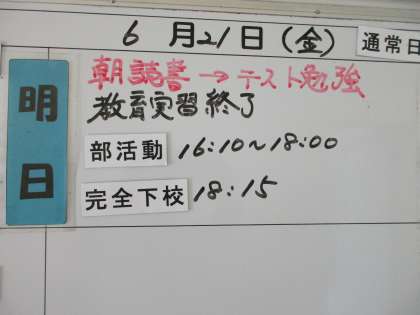 6月21日(金) 通常日
明日
朝読書→テスト勉強
教育実習終了
部活動 16:10～18:00
完全下校 18:15